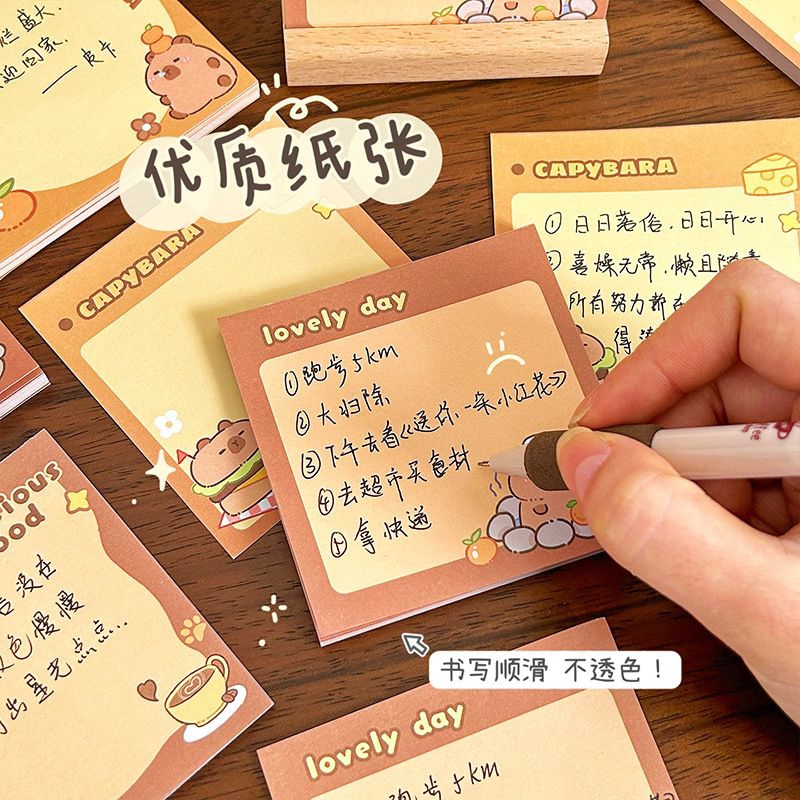 烂盛大.
迎回家.
——皮卡
优质纸张
CAPYBARA
CAPYBARA
①日日落俗.日日开心
喜燥无常.懒且随意
所有努力都在
得
lovely day
①跑步5km
②大归除
③下午去看《送你一朵小红花》
④去超市买食材
⑤拿快递
书写顺滑 不透色！
rious
ood
没在
色慢慢
出星光点点...
lovely day
跑步5km